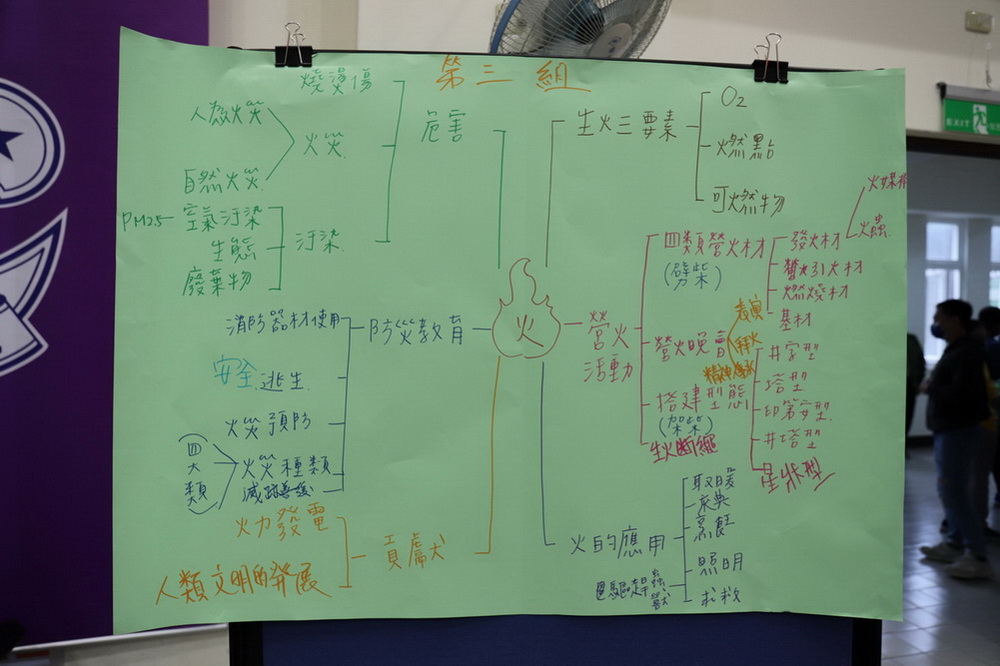 第三組
燒燙傷
人為火災
火災
自然火災
危害
PM2.5
空氣汙染
生態
廢棄物
汙染
生火三要素
O2
燃點
可燃物
火
營火
活動
四類營火材
(劈柴)
發火材
火媒棉
火蟲
引火材
燃燒材
基材
營火晚會
表演
搭建型態
(架柴)
井字型
塔型
印第安型
井塔型
星狀型
生火斷繩
防災教育
消防器材使用
安全逃生
火災預防
火災種類
四大類
貢獻
火力發電
人類文明的發展
火的應用
取暖
烹飪
照明
求救
EXIT